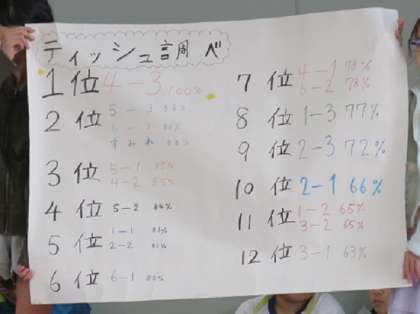 ティッシュ調べ
1位 4-3 100%
2位 5-3
すみれ
3位 5-1 85%
4-2 85%
4位 5-2
5位 1-1
2-2
6位 6-1
7位 4-1 78%
6-2 78%
8位 1-3 77%
9位 2-3 72%
10位 2-1 66%
11位 1-2 65%
3-2 65%
12位 3-1 63%